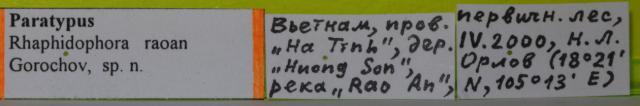 Paratypus
Rhaphidophora raoan
Gorochov, sp. n.
Вьетнам, пров.
„Ha Tinh", дер.
„Huong Son",
река „Rao An",
первичн. лес,
IV.2000, Н.Л.
Орлов (18°21'
N, 105°13' E)